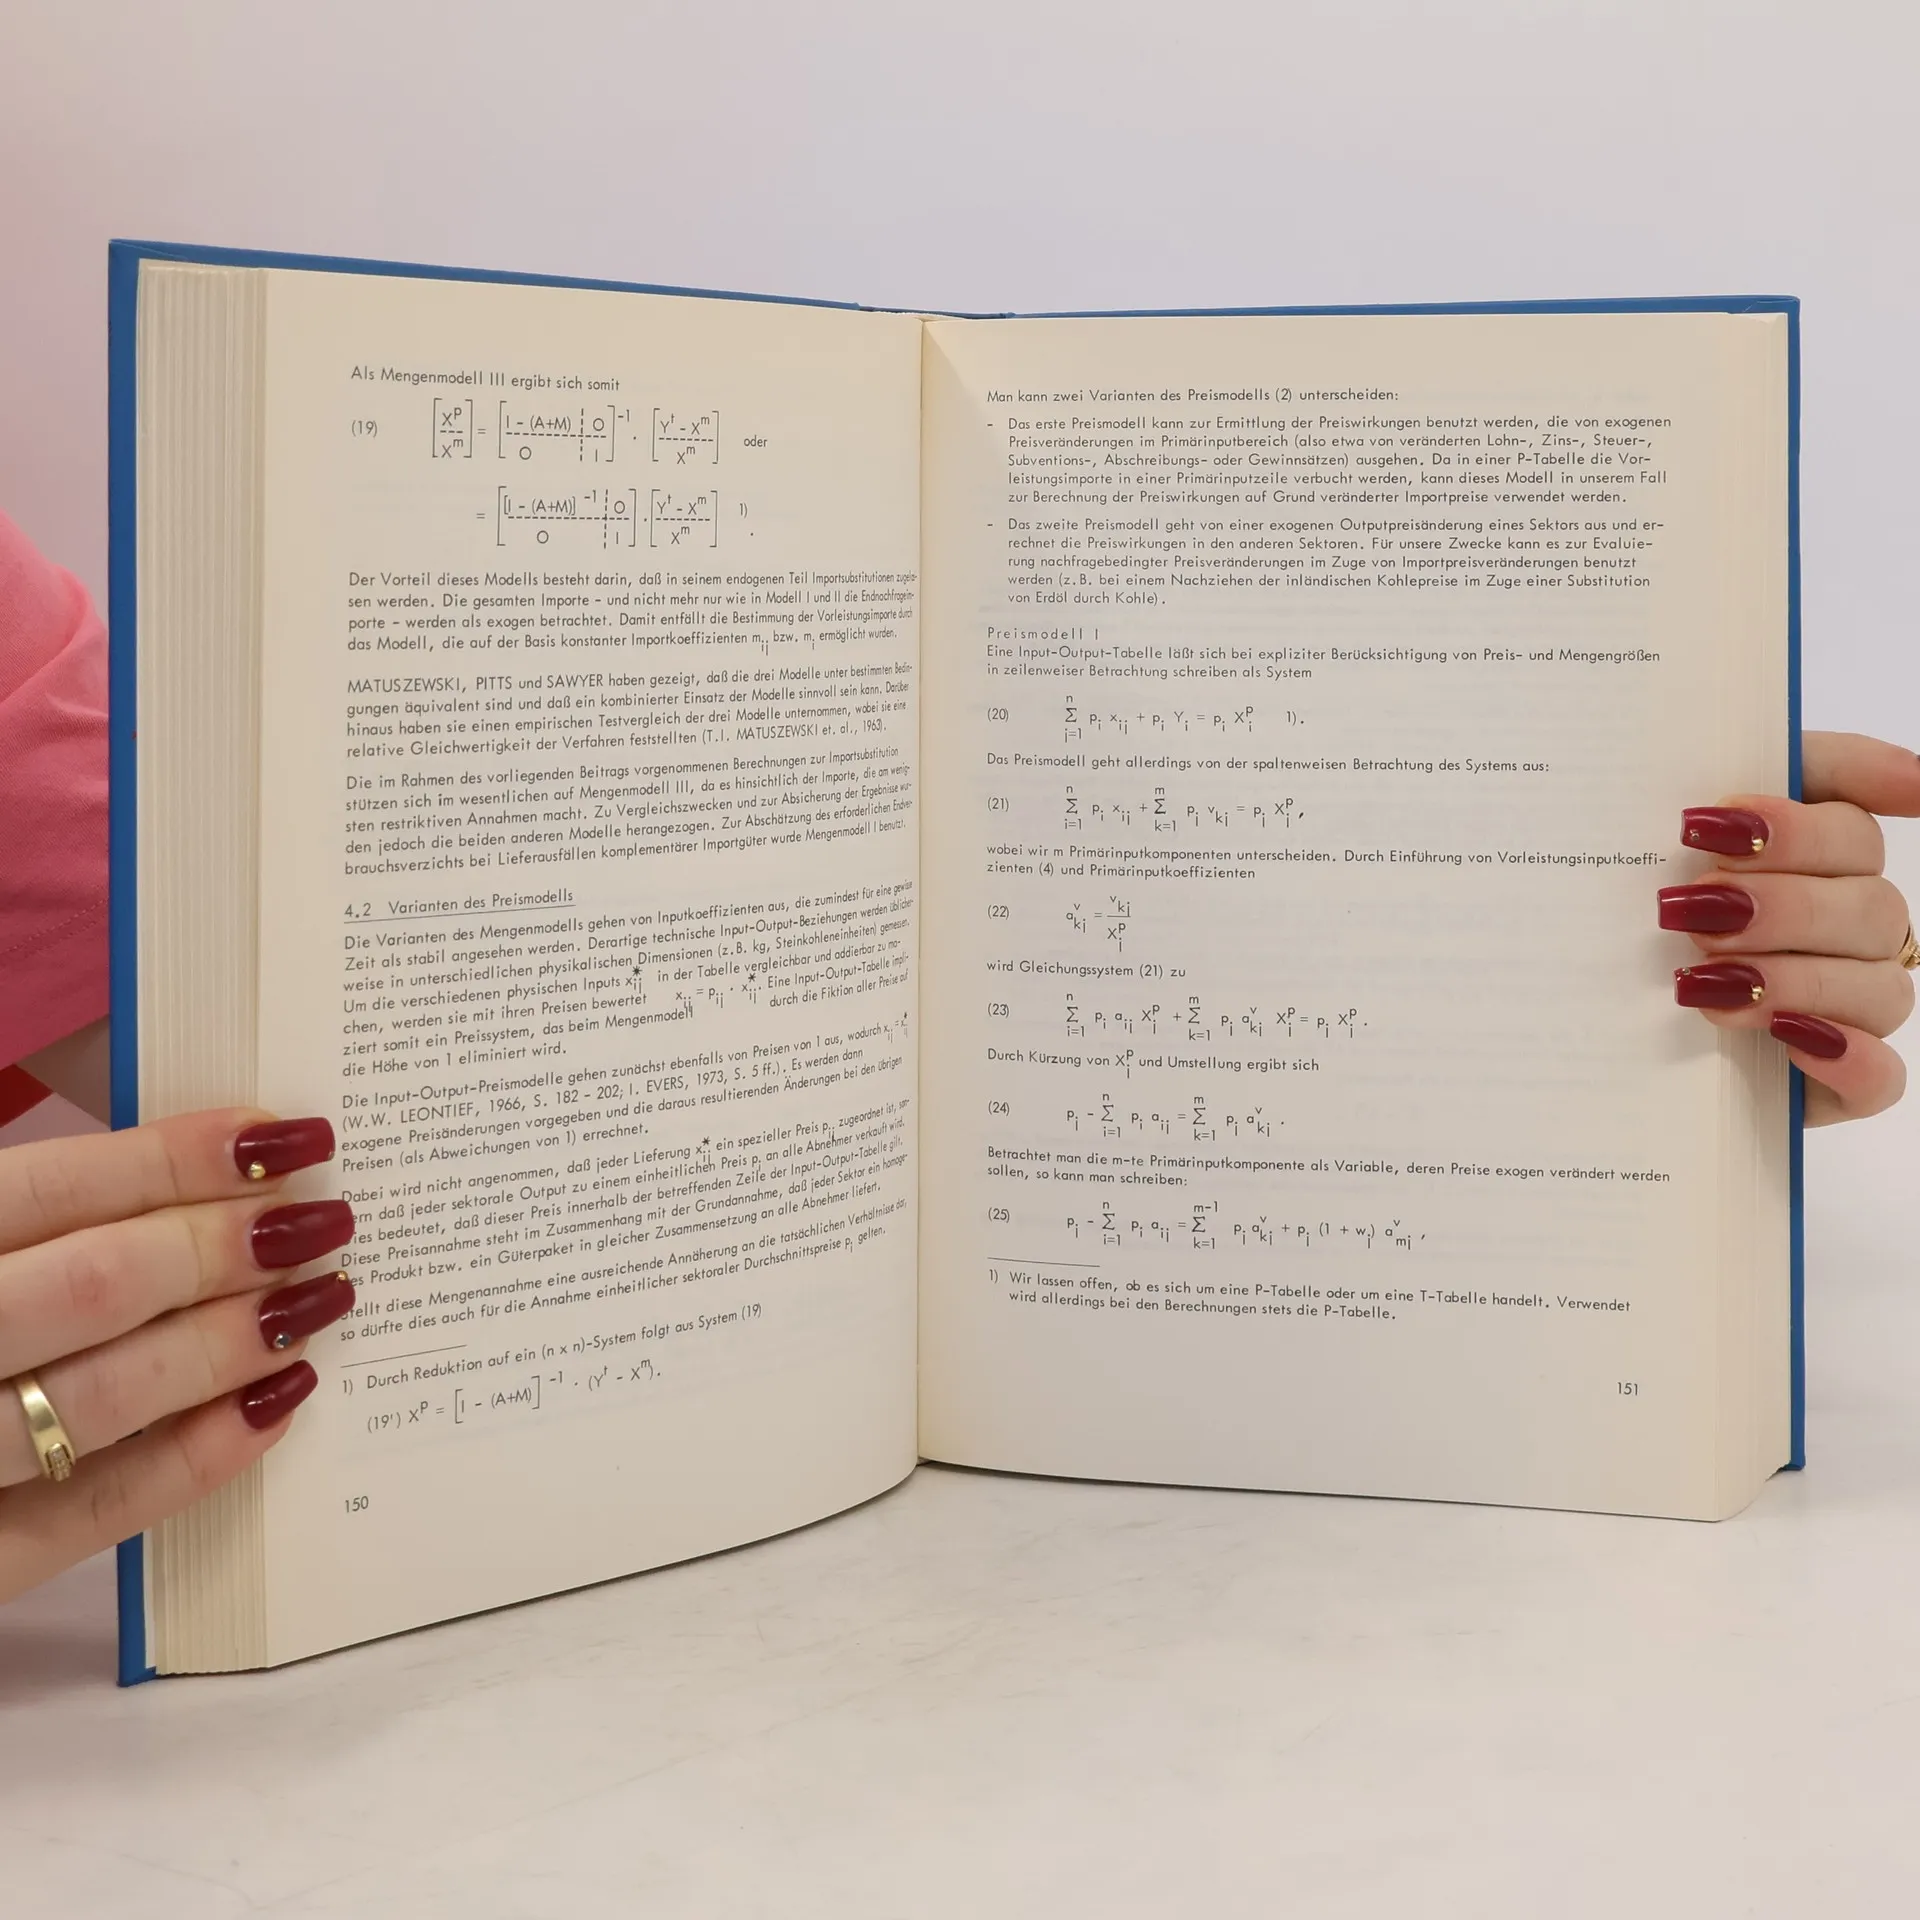 Als Mengenmodell III ergibt sich somit
(19) [X^p / X^m] = [I - (A+M) | O / O | I]^-1 . [Y^t - X^m / X^m] oder
= [[I - (A+M)]^-1 | O / O | I] . [Y^t - X^m / X^m] 1) .
Der Vorteil dieses Modells besteht darin, daß in seinem endogenen Teil Importsubstitutionen zugelas-
sen werden. Die gesamten Importe - und nicht mehr nur wie in Modell I und II die Endnachfrageim-
porte - werden als exogen betrachtet. Damit entfällt die Bestimmung der Vorleistungsimporte durch
das Modell, die auf der Basis konstanter Importkoeffizienten m_ij bzw. m_i ermöglicht wurden.
MATUSZEWSKI, PITTS und SAWYER haben gezeigt, daß die drei Modelle unter bestimmten Bedin-
gungen äquivalent sind und daß ein kombinierter Einsatz der Modelle sinnvoll sein kann. Darüber
hinaus haben sie einen empirischen Testvergleich der drei Modelle unternommen, wobei sie eine
relative Gleichwertigkeit der Verfahren feststellten (T.I. MATUSZEWSKI et. al., 1963).
Die im Rahmen des vorliegenden Beitrags vorgenommenen Berechnungen zur Importsubstitution
stützen sich im wesentlichen auf Mengenmodell III, da es hinsichtlich der Importe, die am wenig-
sten restriktiven Annahmen macht. Zu Vergleichszwecken und zur Absicherung der Ergebnisse wur-
den jedoch die beiden anderen Modelle herangezogen. Zur Abschätzung des erforderlichen Endver-
brauchsverzichts bei Lieferausfällen komplementärer Importgüter wurde Mengenmodell I benutzt.
4.2 Varianten des Preismodells
Die Varianten des Mengenmodells gehen von Inputkoeffizienten aus, die zumindest für eine gewisse
Zeit als stabil angesehen werden. Derartige technische Input-Output-Beziehungen werden üblicher-
weise in unterschiedlichen physikalischen Dimensionen (z.B. kg, Steinkohleneinheiten) gemessen.
Um die verschiedenen physischen Inputs x*_ij in der Tabelle vergleichbar und addierbar zu ma-
chen, werden sie mit ihren Preisen bewertet x_ij = p_ij . x*_ij. Eine Input-Output-Tabelle impli-
ziert somit ein Preissystem, das beim Mengenmodell durch die Fiktion aller Preise auf
die Höhe von 1 eliminiert wird.
Die Input-Output-Preismodelle gehen zunächst ebenfalls von Preisen von 1 aus, wodurch x_ij = x*_ij
(W.W. LEONTIEF, 1966, S. 182 - 202; I. EVERS, 1973, S. 5 ff.). Es werden dann
exogene Preisänderungen vorgegeben und die daraus resultierenden Änderungen bei den übrigen
Preisen (als Abweichungen von 1) errechnet.
Dabei wird nicht angenommen, daß jeder Lieferung x*_ij ein spezieller Preis p_ij zugeordnet ist, son-
ern daß jeder sektorale Output zu einem einheitlichen Preis p_i an alle Abnehmer verkauft wird.
ies bedeutet, daß dieser Preis innerhalb der betreffenden Zeile der Input-Output-Tabelle gilt.
Diese Preisannahme steht im Zusammenhang mit der Grundannahme, daß jeder Sektor ein homoge-
es Produkt bzw. ein Güterpaket in gleicher Zusammensetzung an alle Abnehmer liefert.
tellt diese Mengenannahme eine ausreichende Annäherung an die tatsächlichen Verhältnisse dar,
so dürfte dies auch für die Annahme einheitlicher sektoraler Durchschnittspreise p_i gelten.
1) Durch Reduktion auf ein (n x n)-System folgt aus System (19)
(19') X^p = [I - (A+M)]^-1 . (Y^t - X^m).
150
Man kann zwei Varianten des Preismodells (2) unterscheiden:
- Das erste Preismodell kann zur Ermittlung der Preiswirkungen benutzt werden, die von exogenen
Preisveränderungen im Primärinputbereich (also etwa von veränderten Lohn-, Zins-, Steuer-,
Subventions-, Abschreibungs- oder Gewinnsätzen) ausgehen. Da in einer P-Tabelle die Vor-
leistungsimporte in einer Primärinputzeile verbucht werden, kann dieses Modell in unserem Fall
zur Berechnung der Preiswirkungen auf Grund veränderter Importpreise verwendet werden.
- Das zweite Preismodell geht von einer exogenen Outputpreisänderung eines Sektors aus und er-
rechnet die Preiswirkungen in den anderen Sektoren. Für unsere Zwecke kann es zur Evaluie-
rung nachfragebedingter Preisveränderungen im Zuge von Importpreisveränderungen benutzt
werden (z.B. bei einem Nachziehen der inländischen Kohlepreise im Zuge einer Substitution
von Erdöl durch Kohle).
Preismodell I
Eine Input-Output-Tabelle läßt sich bei expliziter Berücksichtigung von Preis- und Mengengrößen
in zeilenweiser Betrachtung schreiben als System
(20) Σ_{j=1}^n p_i x_ij + p_i Y_i = p_i X_i^p 1).
Das Preismodell geht allerdings von der spaltenweisen Betrachtung des Systems aus:
(21) Σ_{i=1}^n p_i x_ij + Σ_{k=1}^m p_j v_kj = p_j X_j^p,
wobei wir m Primärinputkomponenten unterscheiden. Durch Einführung von Vorleistungsinputkoeffi-
zienten (4) und Primärinputkoeffizienten
(22) a_kj^v = v_kj / X_j^p
wird Gleichungssystem (21) zu
(23) Σ_{i=1}^n p_i a_ij X_j^p + Σ_{k=1}^m p_j a_kj^v X_j^p = p_j X_j^p .
Durch Kürzung von X_j^p und Umstellung ergibt sich
(24) p_j - Σ_{i=1}^n p_i a_ij = Σ_{k=1}^m p_j a_kj^v .
Betrachtet man die m-te Primärinputkomponente als Variable, deren Preise exogen verändert werden
sollen, so kann man schreiben:
(25) p_j - Σ_{i=1}^n p_i a_ij = Σ_{k=1}^{m-1} p_j a_kj^v + p_j (1 + w_j) a_mj^v ,
1) Wir lassen offen, ob es sich um eine P-Tabelle oder um eine T-Tabelle handelt. Verwendet
wird allerdings bei den Berechnungen stets die P-Tabelle.
151